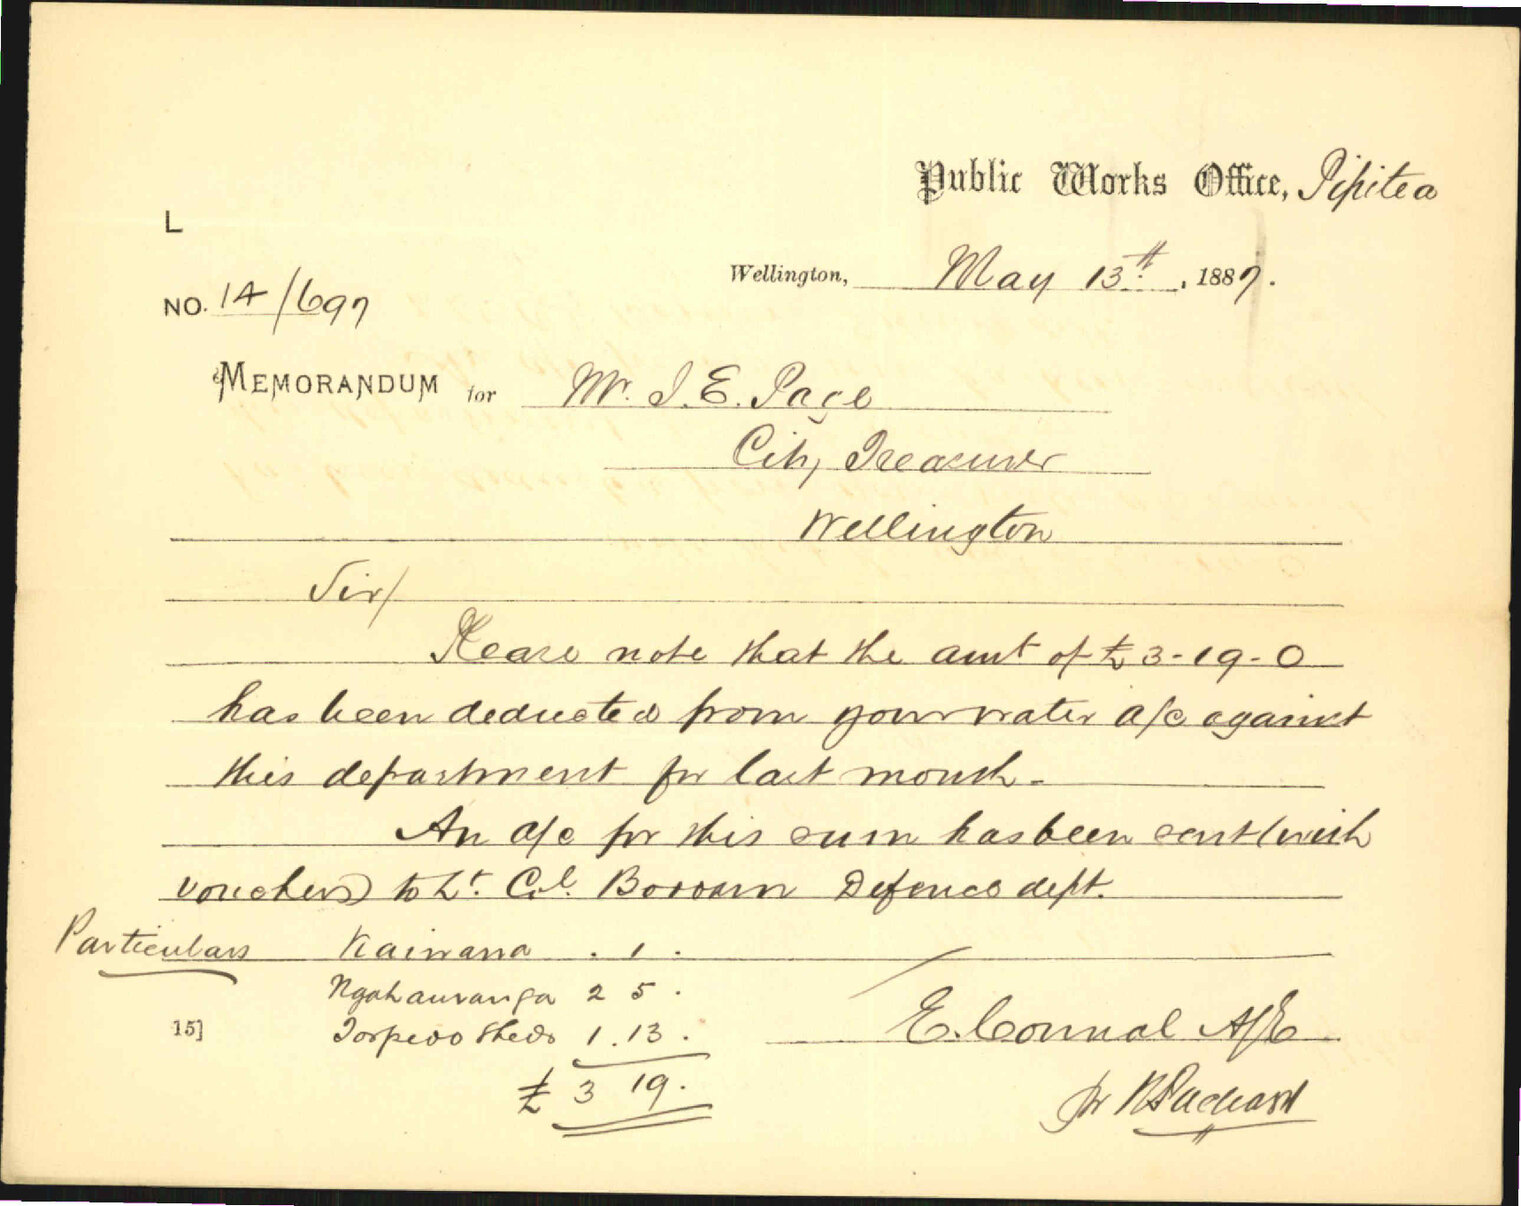 Public Works Office, Pipitea
L
Wellington, May 13th. , 1887.
NO. 14/697
MEMORANDUM for Mr. J. E. Page
City Treasurer
Wellington
Sir/
Please note that the amt of £3-19-0
has been deducted from your water a/c against
this department for last month-
An a/c for this sum has been sent (with
vouchers) to Lt. Col. Boddam Defence dept.
Particulars Kaiwarra . 1 .
Ngahauranga 2 5 .
15] Torpedo Sheds 1 . 13 .
£ 3 19 .
E. Connal A/E
pr